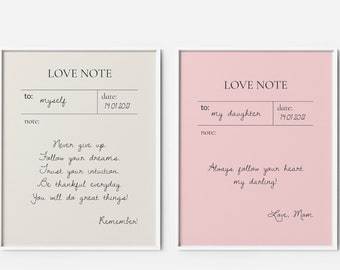 LOVE NOTE
to: myself
date: 14.01.2021
note:
Never give up.
Follow your dreams.
Trust your intuition.
Be thankful everyday.
You will do great things!
Remember!
LOVE NOTE
to: my daughter
date: 14.01.2021
note:
Always follow your heart
my darling!
Love, Mom